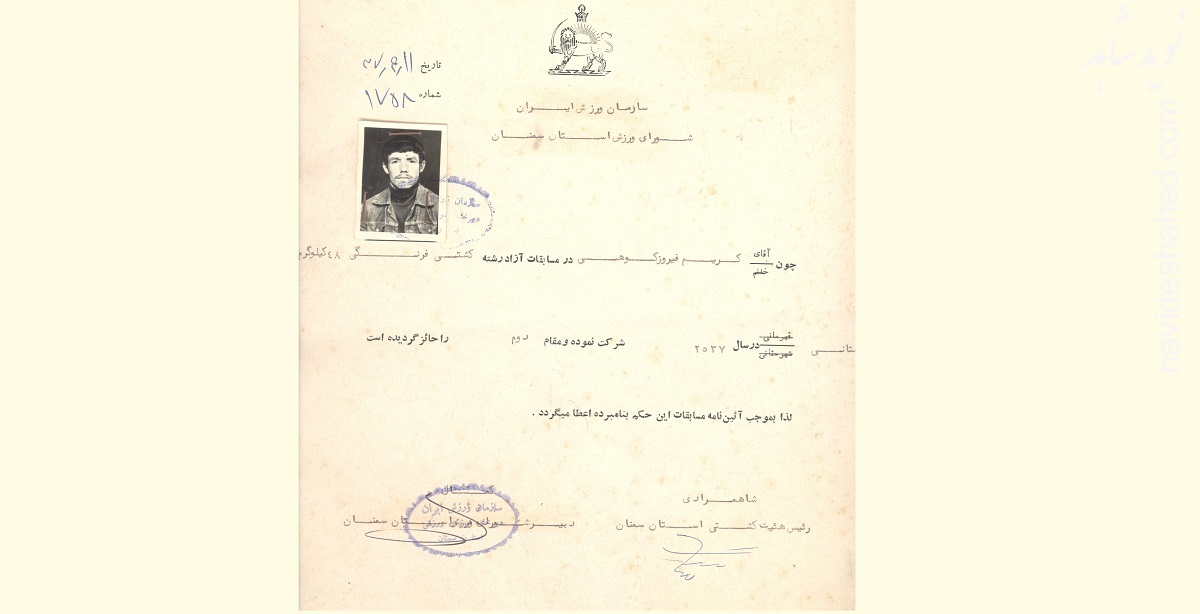 تاریخ ۳۷/۳/۱۱
شماره ۱۷۵۸
سازمان ورزش ایران
شورای ورزش استان سمنان
چون آقای خانم کریم فیروزکوهی در مسابقات آزاد رشته کشتی فرنگی ۴۸ کیلوگرم
قهرمانی شهرستانی ستانی در سال ۲۵۳۷ شرکت نموده و مقام دوم را حائز گردیده است
لذا بموجب آئین نامه مسابقات این حکم بنامبرده اعطا میگردد .
شاهمرادی
رئیس هئیت کشتی استان سمنان
دبیر شورای ورزش استان سمنان
سازمان ورزش ایران
نوید شاهد
navideshahed.com